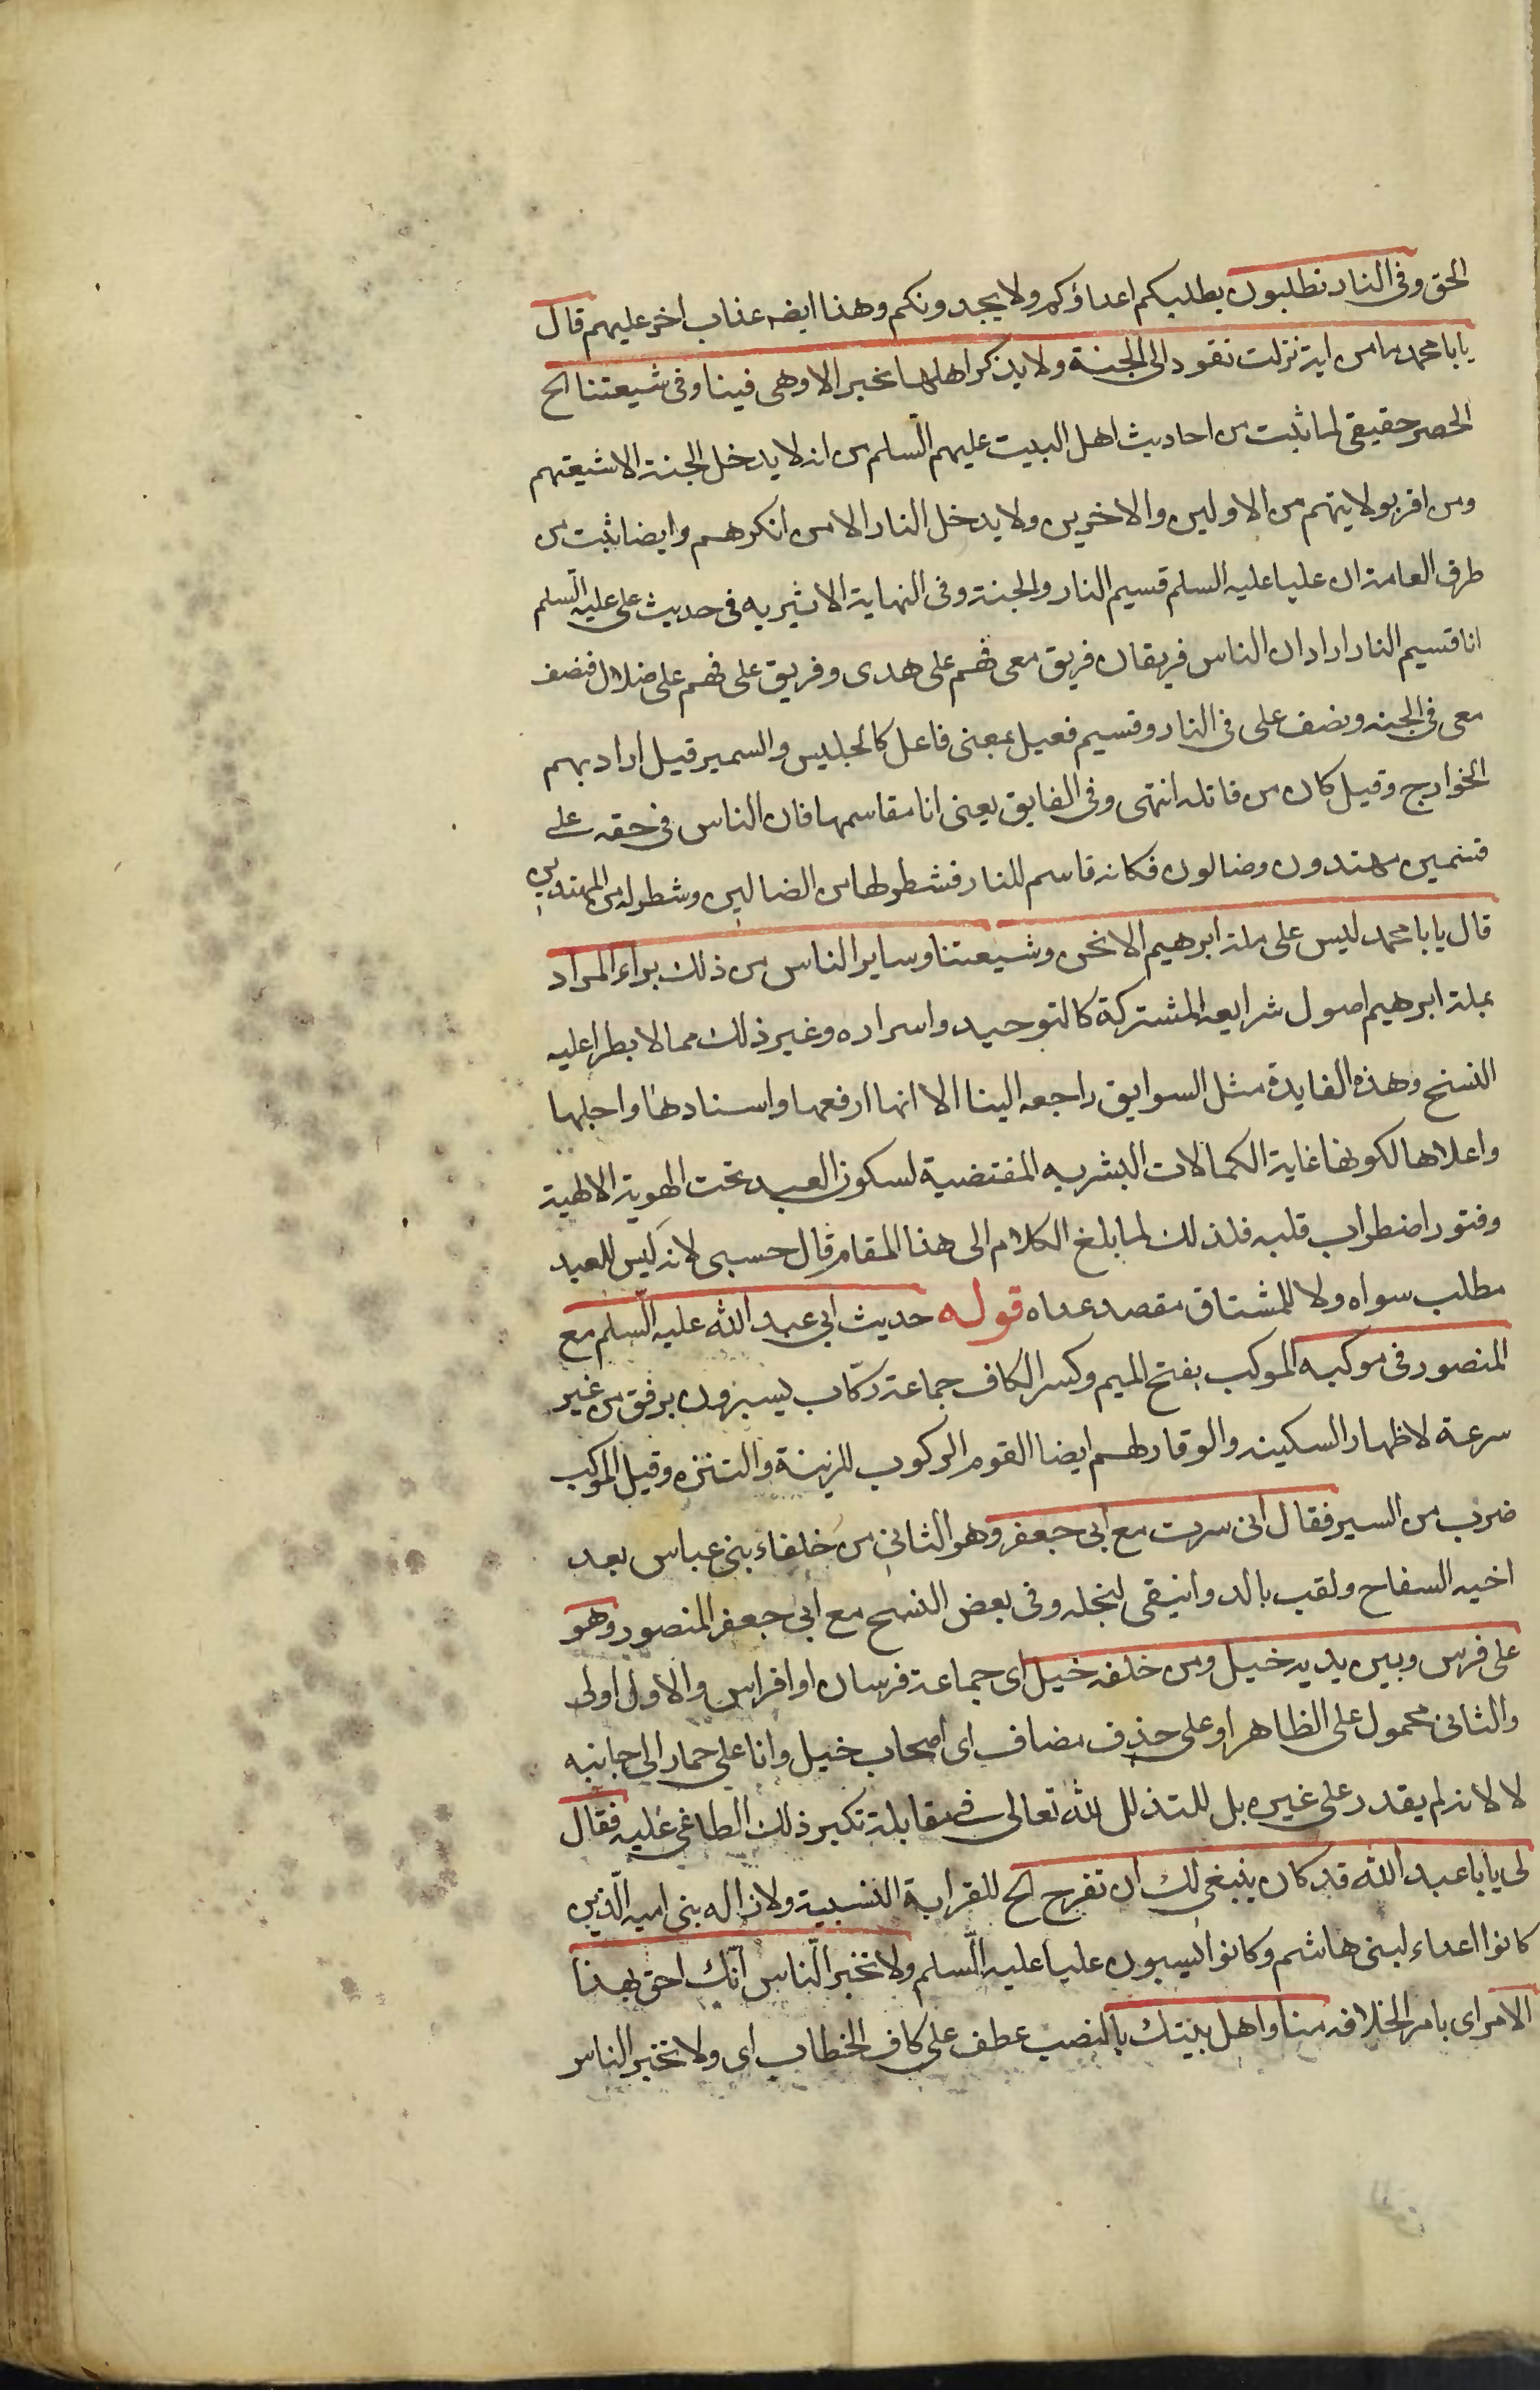 الحق وفى النار تطلبون يطلبكم اعداؤكم ولا يجدونكم وهذا ايضه عذاب اخر عليهم قال
يابا محمد ما من اية نزلت تقود الى الجنة ولا يذكر اهلها بخير الا وهى فينا وفى شيعتنا الخ
الحصر حقيقى لما ثبت من احاديث اهل البيت عليهم السلم من انه لا يدخل الجنة الا شيعتهم
ومن اقر بولايتهم من الاولين والاخرين ولا يدخل النار الا من انكرهم وايضا ثبت من
طرق العامة ان عليا عليه السلم قسيم النار والجنة وفى النهاية الاثيريه فى حديث على عليه السلم
انا قسيم النار اراد ان الناس فريقان فريق معى فهم على هدى وفريق على فهم على ضلال فنصف
معى فى الجنه ونصف على فى النار وقسيم فعيل بمعنى فاعل كالجليس والسمير قيل اراد بهم
الخوارج وقيل كان من قاتله انتهى وفى الفايق يعنى انا مقاسمها فان الناس فى حقه على
قسمين مهتدون وضالون فكانه قاسم للنار فشطر لها من الضالين وشطر له من المهتدين
قال يابا محمد ليس على ملة ابرهيم الا نحن وشيعتنا وساير الناس من ذلك براء المراد
بملة ابرهيم اصول شرايعه المشتركة كالتوحيد واسراره وغير ذلك مما لا يطرا عليه
النسخ وهذه الفايدة مثل السوابق راجعه الينا الا انها ارفعها واسنادها واجلها
واعلاها لكونها غاية الكمالات البشريه المقتضية لسكون العبد تحت الهوية الالهية
وفتور اضطراب قلبه فلذلك لما بلغ الكلام الى هذا المقام قال حسبى لانه ليس للعبد
مطلب سواه ولا للمشتاق مقصد عداه قوله حديث ابى عبد الله عليه السلم مع
المنصور فى موكبه الموكب بفتح الميم وكسر الكاف جماعة ركّاب يسيرون برفق من غير
سرعة لاظهار السكينه والوقار لهم ايضا القوم الركوب للزينة والتنزه وقيل الموكب
ضرب من السير فقال انى سرت مع ابى جعفر وهو الثانى من خلفاء بنى عباس بعد
اخيه السفاح ولقب بالدوانيقى لبخله وفى بعض النسخ مع ابى جعفر المنصور وهو
على فرس وبين يديه خيل ومن خلفه خيل اى جماعة فرسان او افراس والاول اولى
والثانى محمول على الظاهر او على حذف مضاف اى اصحاب خيل وانا على حمار الى جانبه
لا لانه لم يقدر على غيره بل للتذلل لله تعالى فى مقابلة تكبر ذلك الطاغى عليه فقال
لى يابا عبد الله قد كان ينبغى لك ان تفرح الخ للقرابة النسبية ولازاله بنى اميه الّذين
كانوا اعداء لبنى هاشم وكانوا يسبون عليا عليه السّلم ولا تخبر النّاس انّك احق بهذا
الامر اى بامر الخلافه منا واهل بيتك بالنصب عطف على كاف الخطاب اى ولا تخبر الناس